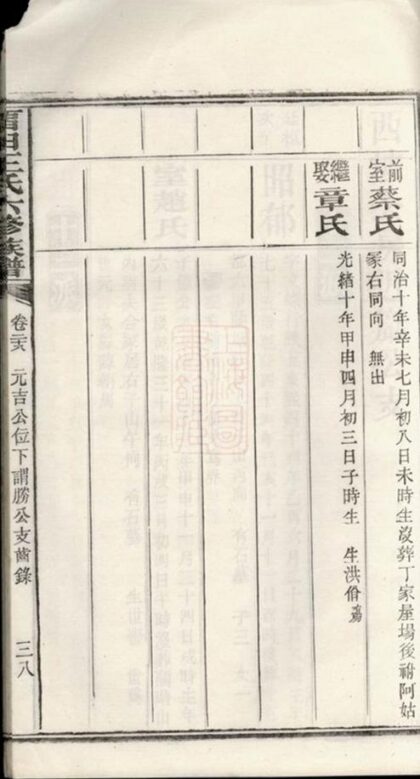 前室蔡氏
同治十年辛未七月初八日未時生沒葬丁家屋場後祔阿姑
冢右同向 無出
繼娶章氏
光緒十年甲申四月初三日子時生 生洪俗
王氏六修族譜
卷二六 元吉公位下謂勝公支齒錄
三八